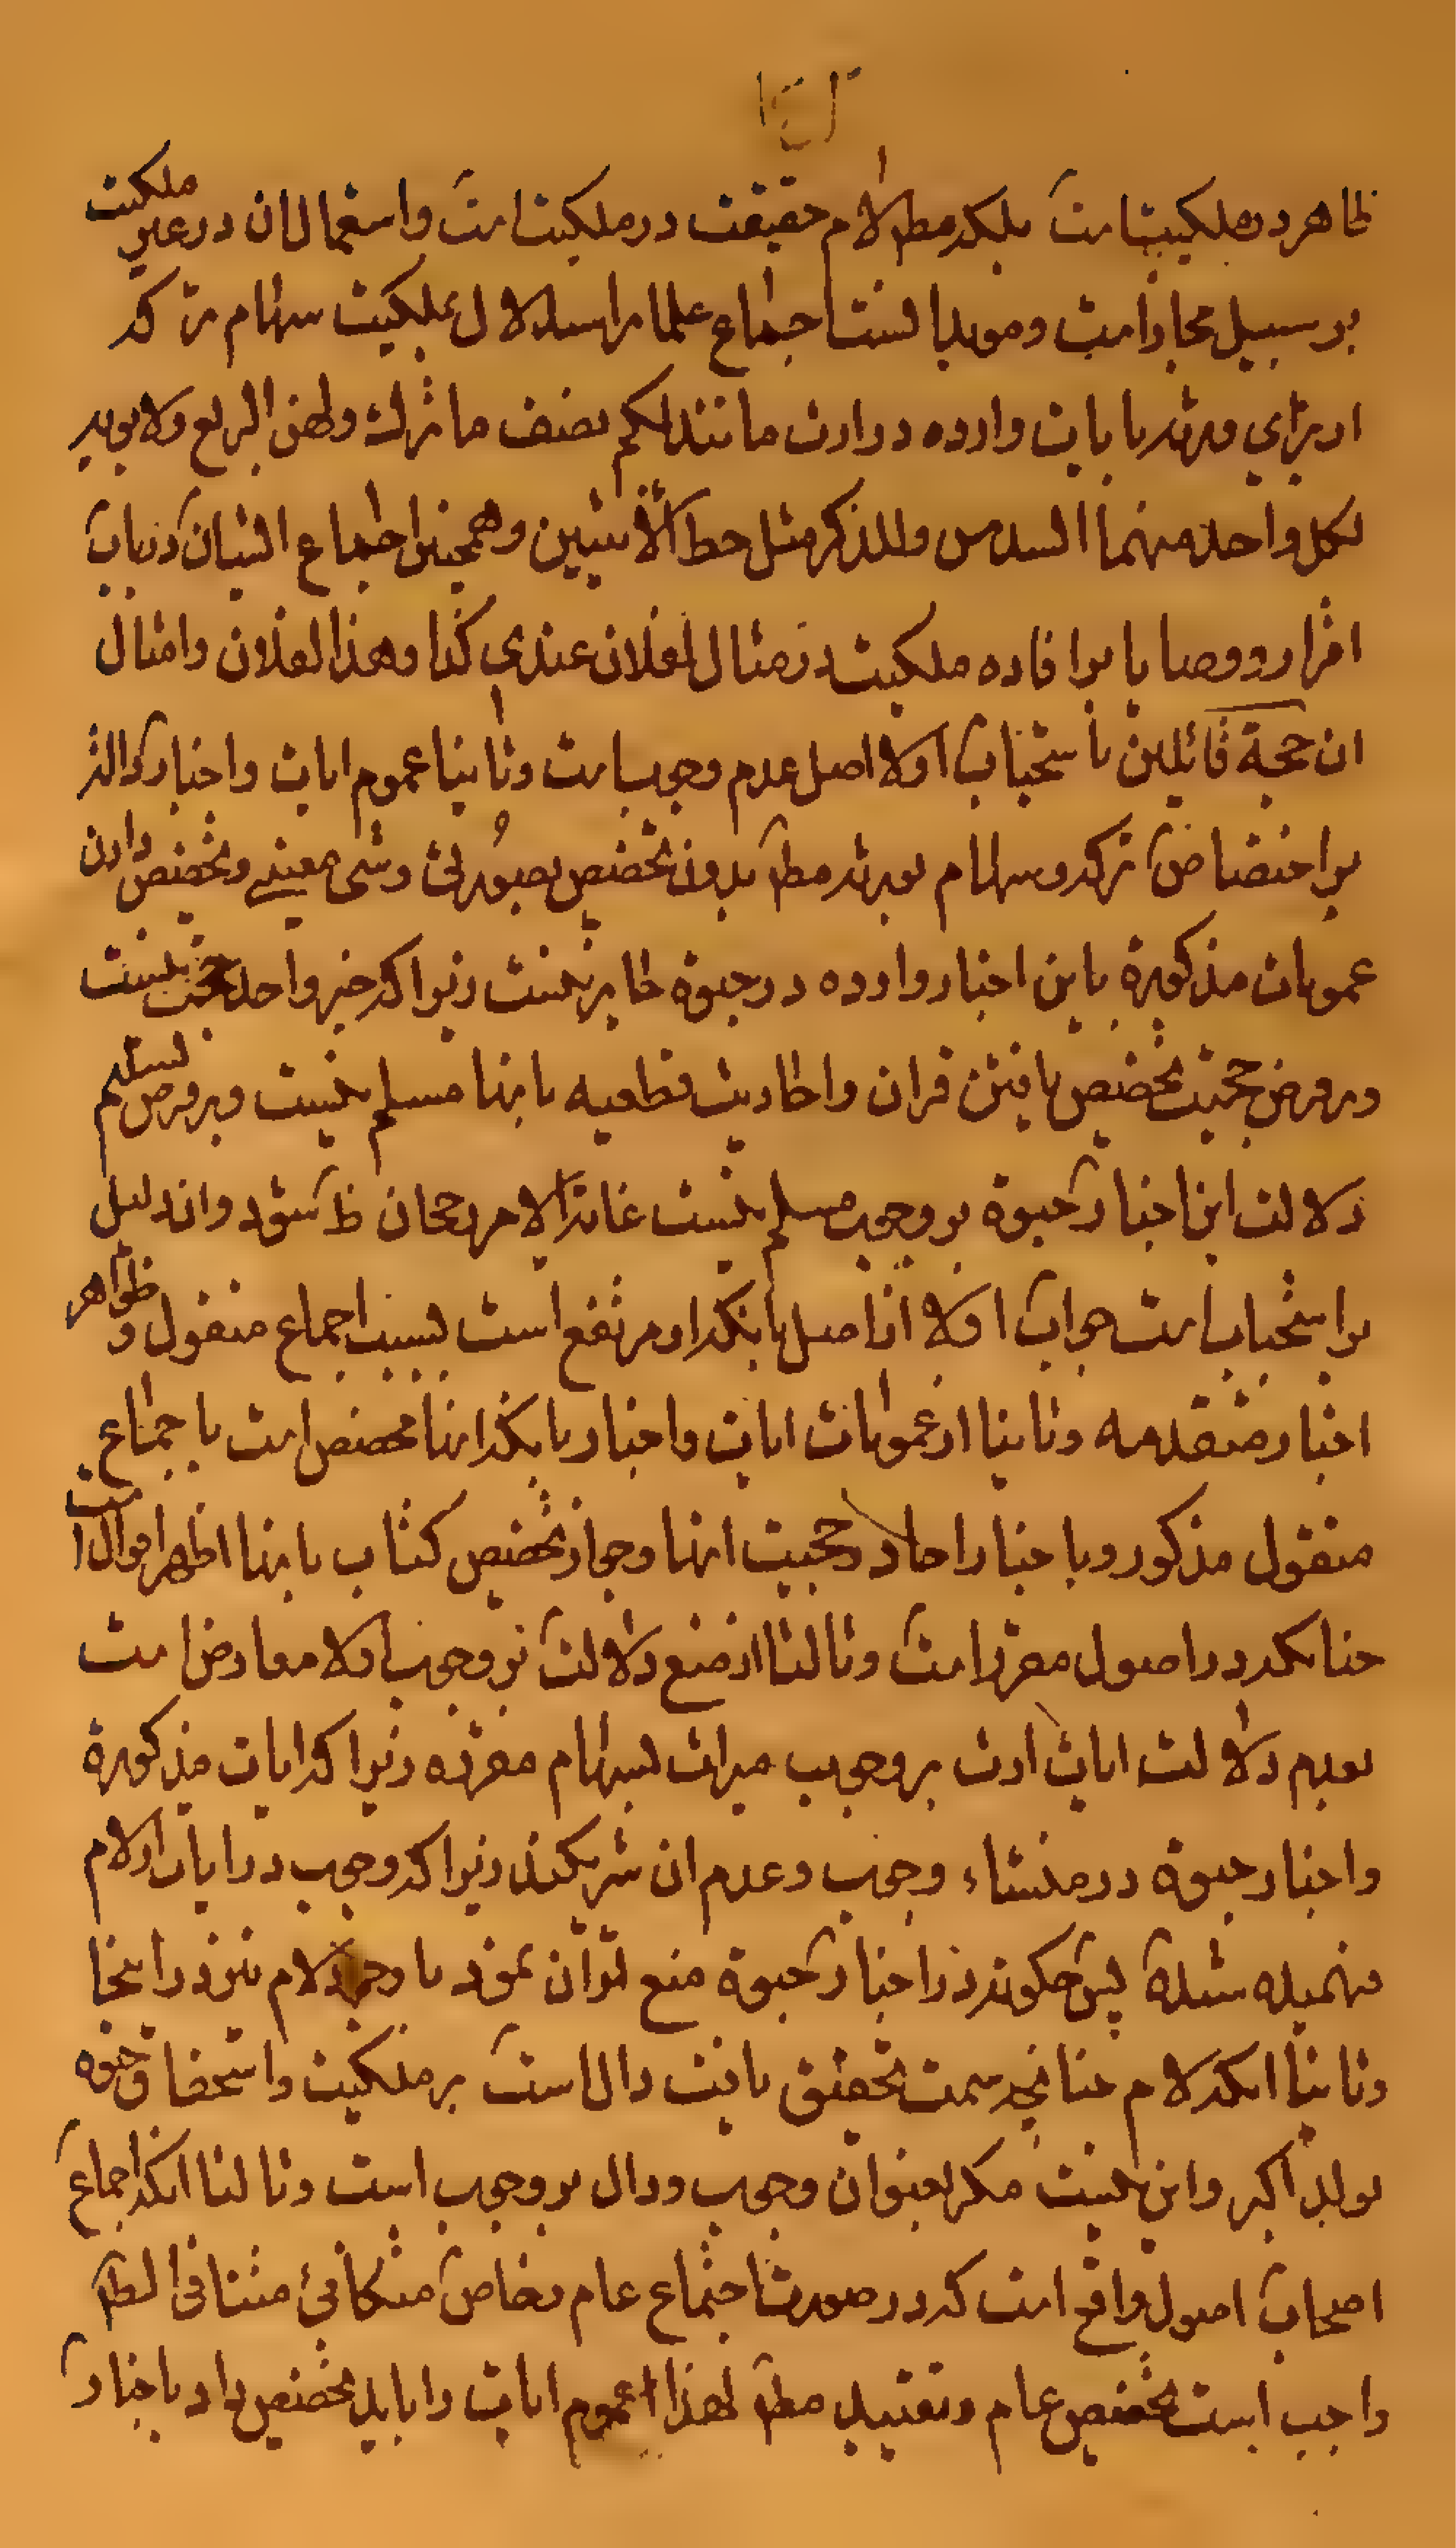 ظاهر در ملکیت است بلکه مط لام حقیقت در ملکیت است و استعمال ان در غیر ملکیت
بر سبیل مجاز است و موید اینست اجماع علما بر استدلال بملکیت سهام ترکه
از برای ورثه بایات وارده در ارث مانند لکم نصف ما ترک ولهن الربع ولابویه
لکل واحد منهما السدس وللذکر مثل حظ الأنثیین و همچنین اجماع ایشان در باب
اقرار و وصایا بر افاده ملکیت در مثال لفلان عندی کذا وهذا لفلان وامثال
ان حجة قائلین باستحباب اولا اصل عدم وجوب است وثانیا عموم ایات واخبار داله
بر اختصاص ترکه وسهام بورثه مط بدون تخصیص بصورتی وشی معینی وتخصیص دادن
عمومات مذکورة باین اخبار وارده در حبوة جایز نیست زیرا که خبر واحد حجت نیست
وبر فرض حجیت تخصیص یافتن قران واحادیث قطعیه بانها مسلم نیست وبر فرض تسلیم
دلالت این اخبار حبوة بر وجوب مسلم نیست غایة الامر رجحان ظ شود وان دلیل
بر استحباب است جواب اولا از اصل بانکه او مرتفع است بسبب اجماع منقول و ظواهر
اخبار متقدمه وثانیا از عمومات ایات واخبار بانکه اینها مخصص است باجماع
منقول مذکور وباخبار احاد وحجیت انها وجواز تخصیص کتاب بانها اظهر اقوال است
چنانکه در اصول مقرر است وثالثا از منع دلالت بر وجوب اولا معارض است
بعدم دلالت ایات ارث بر وجوب میراث بسهام مقرره زیرا که ایات مذکورة
واخبار حبوة در منشاء وجوب وعدم ان شریکند زیرا که وجوب در ایات از لام
فهمیده شده پس چگونه در اخبار حبوة منع توان نمود با وجود لام نیز در اینجا
وثانیا انکه لام چنانچه سمت تحقیق یافت دال است بر ملکیت واستحقاق حبوه
بولد اکبر واین نیست مکر بعنوان وجوب ودال بر وجوب است وثالثا انکه اجماع
اصحاب اصول واقع است که در صورت اجتماع عام وخاص متکافئ متنافی الظ
واجب است تخصیص عام وتقیید مط لهذا عموم ایات را باید تخصیص داد باخبار